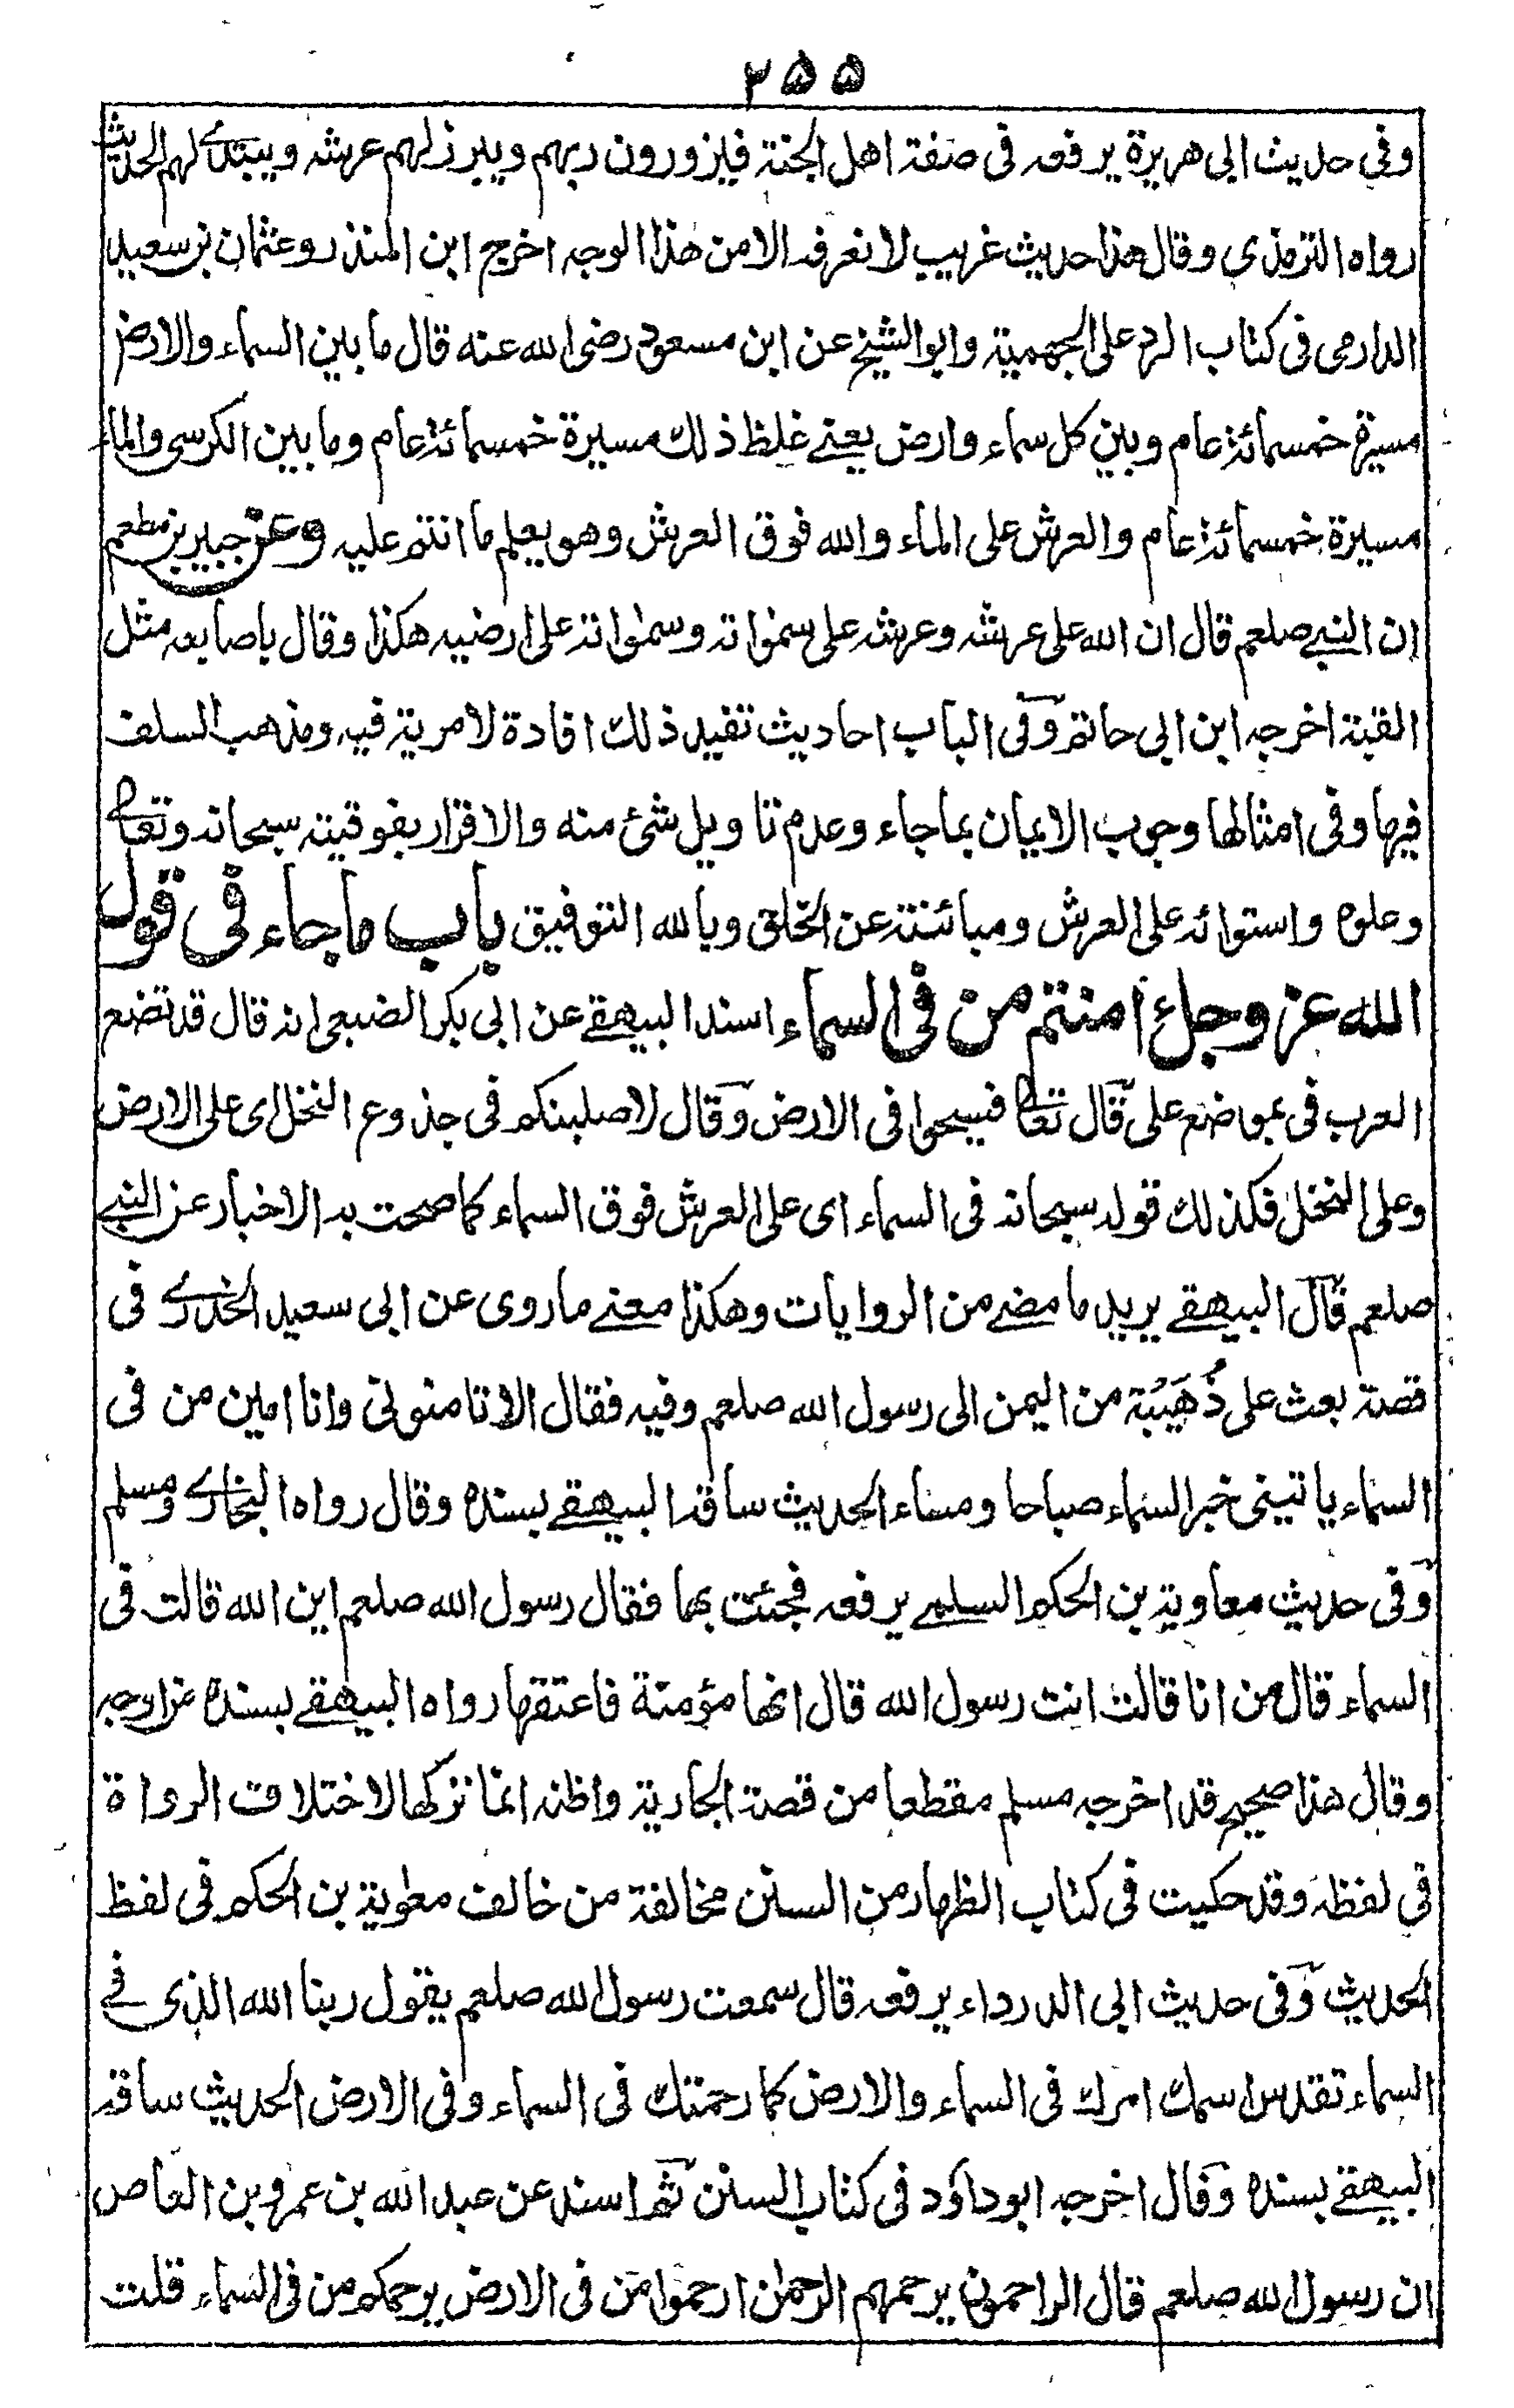 ٢٥٥
وفي حديث ابى هريرة يرفعه فى صفة اهل الجنة فيزورون ربهم ويبرز لهم عرشه ويبتدي لهم الحديث
رواه الترمذي وقال هذا حديث غريب لا نعرفه الا من هذا الوجه اخرج ابن المنذر وعثمان بن سعيد
الدارمى فى كتاب الرد على الجهمية وابو الشيخ عن ابن مسعود رضى الله عنه قال ما بين السماء والارض
مسيرة خمسمائة عام وبين كل سماء وارض يعنے غلظ ذلك مسيرة خمسمائة عام وما بين الكرسى والماء
مسيرة خمسمائة عام والعرش على الماء والله فوق العرش وهو يعلم ما انتم عليه وعن جبير بن مطعم
ان النبے صلعم قال ان الله على عرشه وعرشه على سمٰواته وسمٰواته على ارضيه هكذا وقال باصابعه مثل
القبة اخرجه ابن ابى حاتم وفى الباب احاديث تفيد ذلك افادة لا مرية فيه ومذهب السلف
فيها وفى امثالها وجوب الايمان بما جاء وعدم تاويل شئ منه والاقرار بفوقيته سبحانه وتعالى
وعلوه واستوائه على العرش ومبائنته عن الخلق وبالله التوفيق باب ما جاء فى قول
الله عز وجل ءامنتم من فى السماء اسند البيهقے عن ابى بكر الضبعى انه قال قد تضع
العرب فى بموضع على قال تعالى فسيحوا فى الارض وقال لاصلبنكم فى جذوع النخل اى على الارض
وعلى النخل فكذلك قوله سبحانه فى السماء اى على العرش فوق السماء كما صحت به الاخبار عن النبے
صلعم قال البيهقے يريد ما مضے من الروايات وهكذا معنے ما روى عن ابى سعيد الخدرے فى
قصة بعث على ذُهَيْبَة من اليمن الى رسول الله صلعم وفيه فقال الا تامنونى وانا امين من فى
السماء ياتينى خبر السماء صباحا ومساء الحديث ساقه البيهقے بسنده وقال رواه البخارے ومسلم
وفى حديث معاوية بن الحكم السلمے يرفعه فجئت بها فقال رسول الله صلعم اين الله قالت فى
السماء قال من انا قالت انت رسول الله قال انها مؤمنة فاعتقها رواه البيهقے بسنده عن اوجه
وقال هذا صحيح قد اخرجه مسلم مقطعا من قصة الجارية واظنه انما تركها لاختلاف الرواة
في لفظه وقد حكيت فى كتاب الظهار من السنن مخالفة من خالف معوية بن الحكم فى لفظ
الحديث وفى حديث ابى الدرداء يرفعه قال سمعت رسول الله صلعم يقول ربنا الله الذى فے
السماء تقدس اسمك امرك فى السماء والارض كما رحمتك فى السماء وفى الارض الحديث ساقه
البيهقے بسنده وقال اخرجه ابو داؤد فى كتاب السنن ثم اسند عن عبد الله بن عمرو بن العاص
ان رسول الله صلعم قال الراحمون يرحمهم الرحمٰن ارحموا من فى الارض يرحمكم من فى السماء قلت